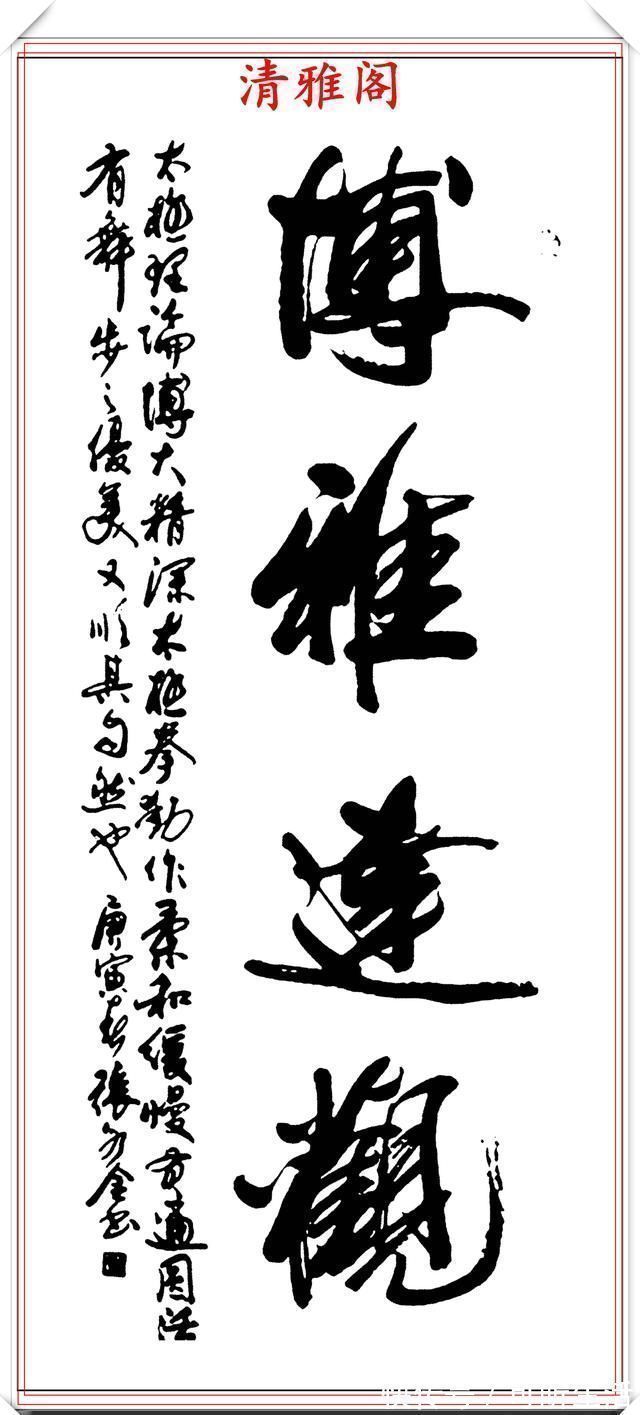 清雅阁
博雅達觀
太極理論博大精深太極拳動作柔和緩慢通圓活
有舞步之優美又順其自然也 庚寅春張金書